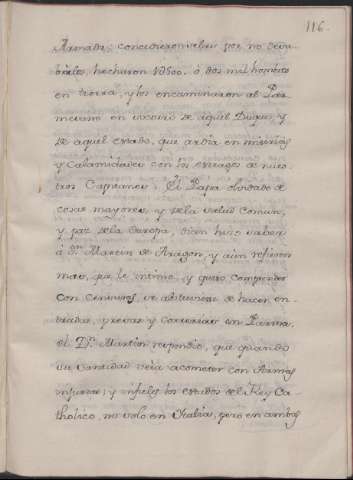 116.
Armada; concedieronselas por no disgu-
starlos, hecharon 1500. ó dos mil hombres
en tierra, y los encaminaron al Par-
mesano en socorro de aquel Duque, y
de aquel estado, que ardia en miserias
y Calamidades con los estragos de nues-
tros Capitanes. El Papa olvidado de
cosas mayores, y de la salud comun,
y paz de la Europa, bien hizo saber
á Dn. Martin de Aragon, y aun refieren
mas, que le intimó y quiso comprender
con Censuras, se abstuviese de hacer en-
tradas, presas y correrias en Parma.
el Dn. Martin respondió, que quando
su santidad veia acometer con Armas
injustas, y infieles los estados del Rey Ca-
tholico, no solo en Italia, pero en ambos